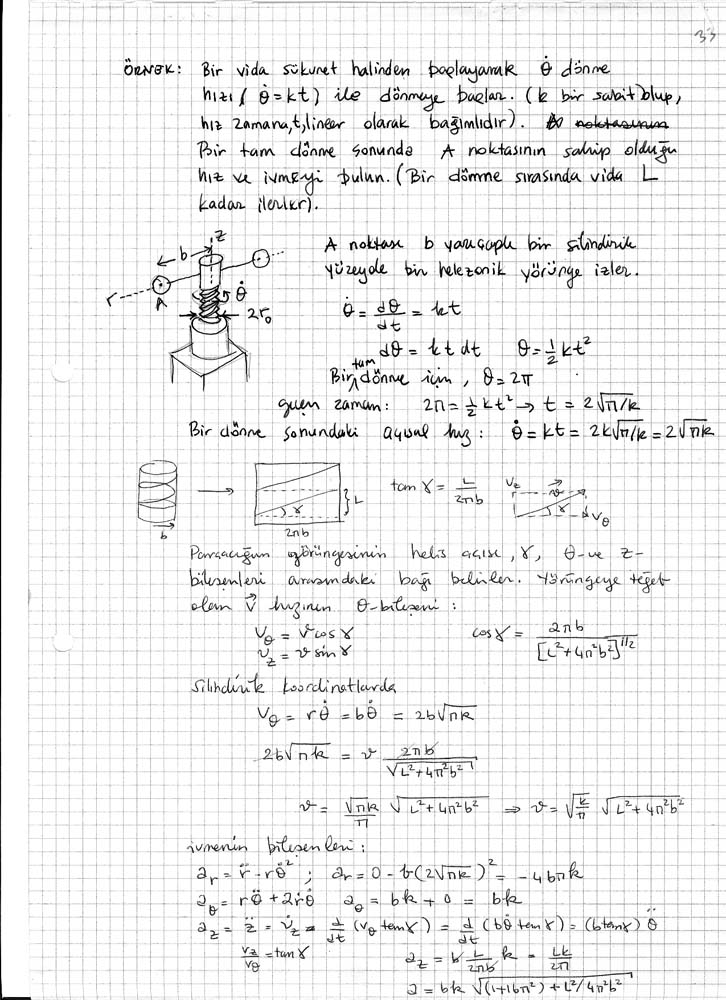 33
ÖRNEK: Bir vida sükunet halinden başlayarak θ̇ dönme
hızı ( θ̇ = kt ) ile dönmeye başlar. (k bir sabit olup,
hız zamana, t, lineer olarak bağımlıdır).
Bir tam dönme sonunda A noktasının sahip olduğu
hız ve ivmeyi bulun. (Bir dönme sırasında vida L
kadar ilerler).
z
b
A noktası b yarıçaplı bir silindirik
yüzeyde bir helezonik yörünge izler.
r A θ̇
2r₀
θ̇ = dθ/dt = kt
dθ = kt dt θ = ½kt²
Bir tam dönme için, θ = 2π
geçen zaman: 2π = ½kt² → t = 2√π/k
Bir dönme sonundaki açısal hız: θ̇ = kt = 2k√π/k = 2√πk
b → γ L 2πb tan γ = L/2πb v_z v γ v_θ
Parçacığın yörüngesinin helis açısı, γ, θ- ve z-
bileşenleri arasındaki bağı belirler. Yörüngeye teğet
olan v⃗ hızının θ-bileşeni:
v_θ = v cos γ cos γ = 2πb/[L²+4π²b²]^1/2
v_z = v sin γ
Silindirik koordinatlarda
v_θ = rθ̇ = bθ̇ = 2b√πk
2b√πk = v 2πb/√L²+4π²b²
v = √πk/π √L²+4π²b² ⇒ v = √k/π √L²+4π²b²
ivmenin bileşenleri:
a_r = r̈ - rθ̇² ; a_r = 0 - b(2√πk)² = -4bπk
a_θ = rθ̈ + 2ṙθ̇ a_θ = bk + 0 = bk
a_z = z̈ = v̇_z = d/dt (v_θ tanγ) = d/dt (bθ̇ tanγ) = (b tanγ) θ̈
v_z/v_θ = tanγ a_z = b L/2πb k = Lk/2π
a = bk √(1+16π²) + L²/4π²b²